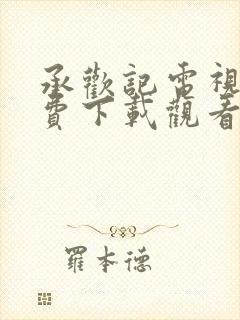 承歡記電視
費下載觀看
羅本德